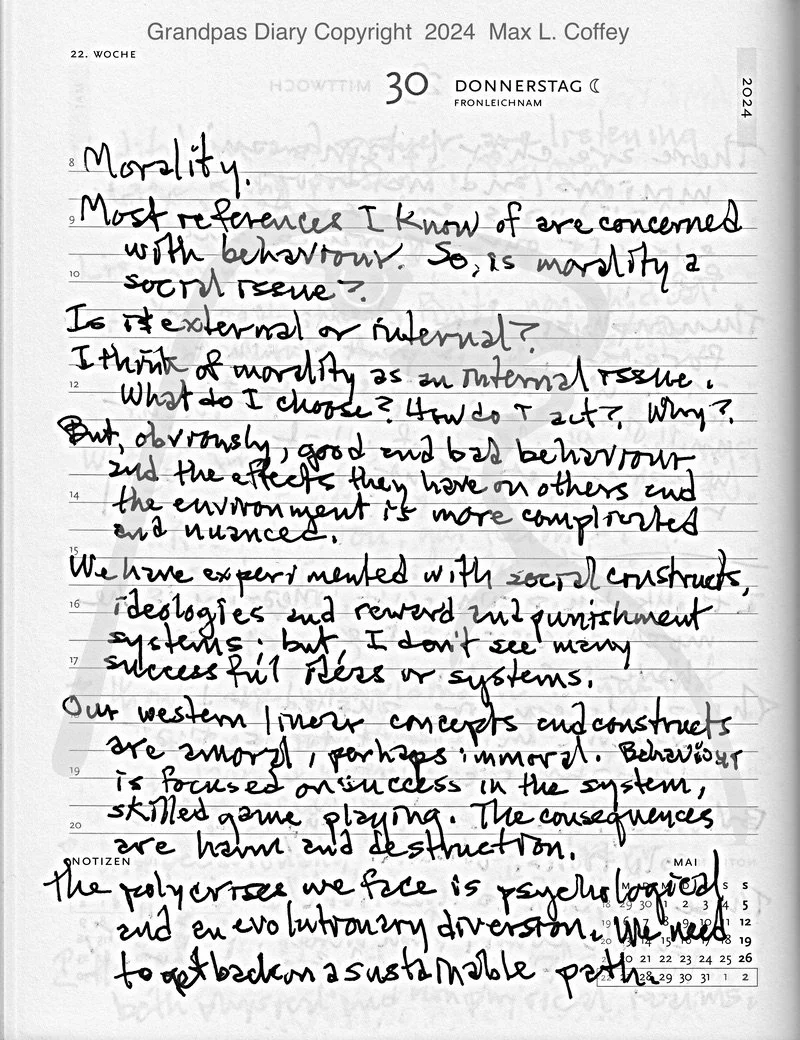 Grandpas Diary Copyright 2024 Max L. Coffey
22. WOCHE
30 DONNERSTAG
FRONLEICHNAM
2024
8 Morality.
9 Most references I know of are concerned
with behaviour. So, is morality a
10 social issue?
Is it external or internal?
I think of morality as an internal issue.
12 What do I choose? How do I act? Why?
But, obviously, good and bad behaviour
and the effects they have on others and
14 the environment is more complicated
and nuanced.
15 We have experimented with social constructs,
16 ideologies and reward and punishment
systems; but, I don't see many
17 successful ideas or systems.
Our western linear concepts and constructs
are amoral, perhaps immoral. Behaviour
19 is focused on success in the system,
skilled game playing. The consequences
20 are harm and destruction.
NOTIZEN
MAI
The polycrises we face is psychological
and an evolutionary diversion. We need
to get back on a sustainable path.
S S
29 30 1 2 3 4 5
12
19
20 21 22 23 24 25 26
28 29 30 31 1 2